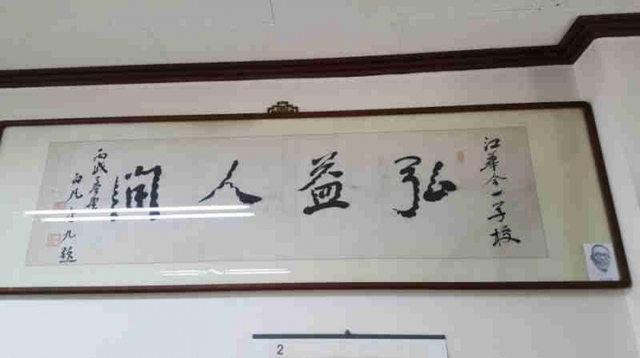 江華合一學校
弘益人間
丙戌
白凡金九題
2